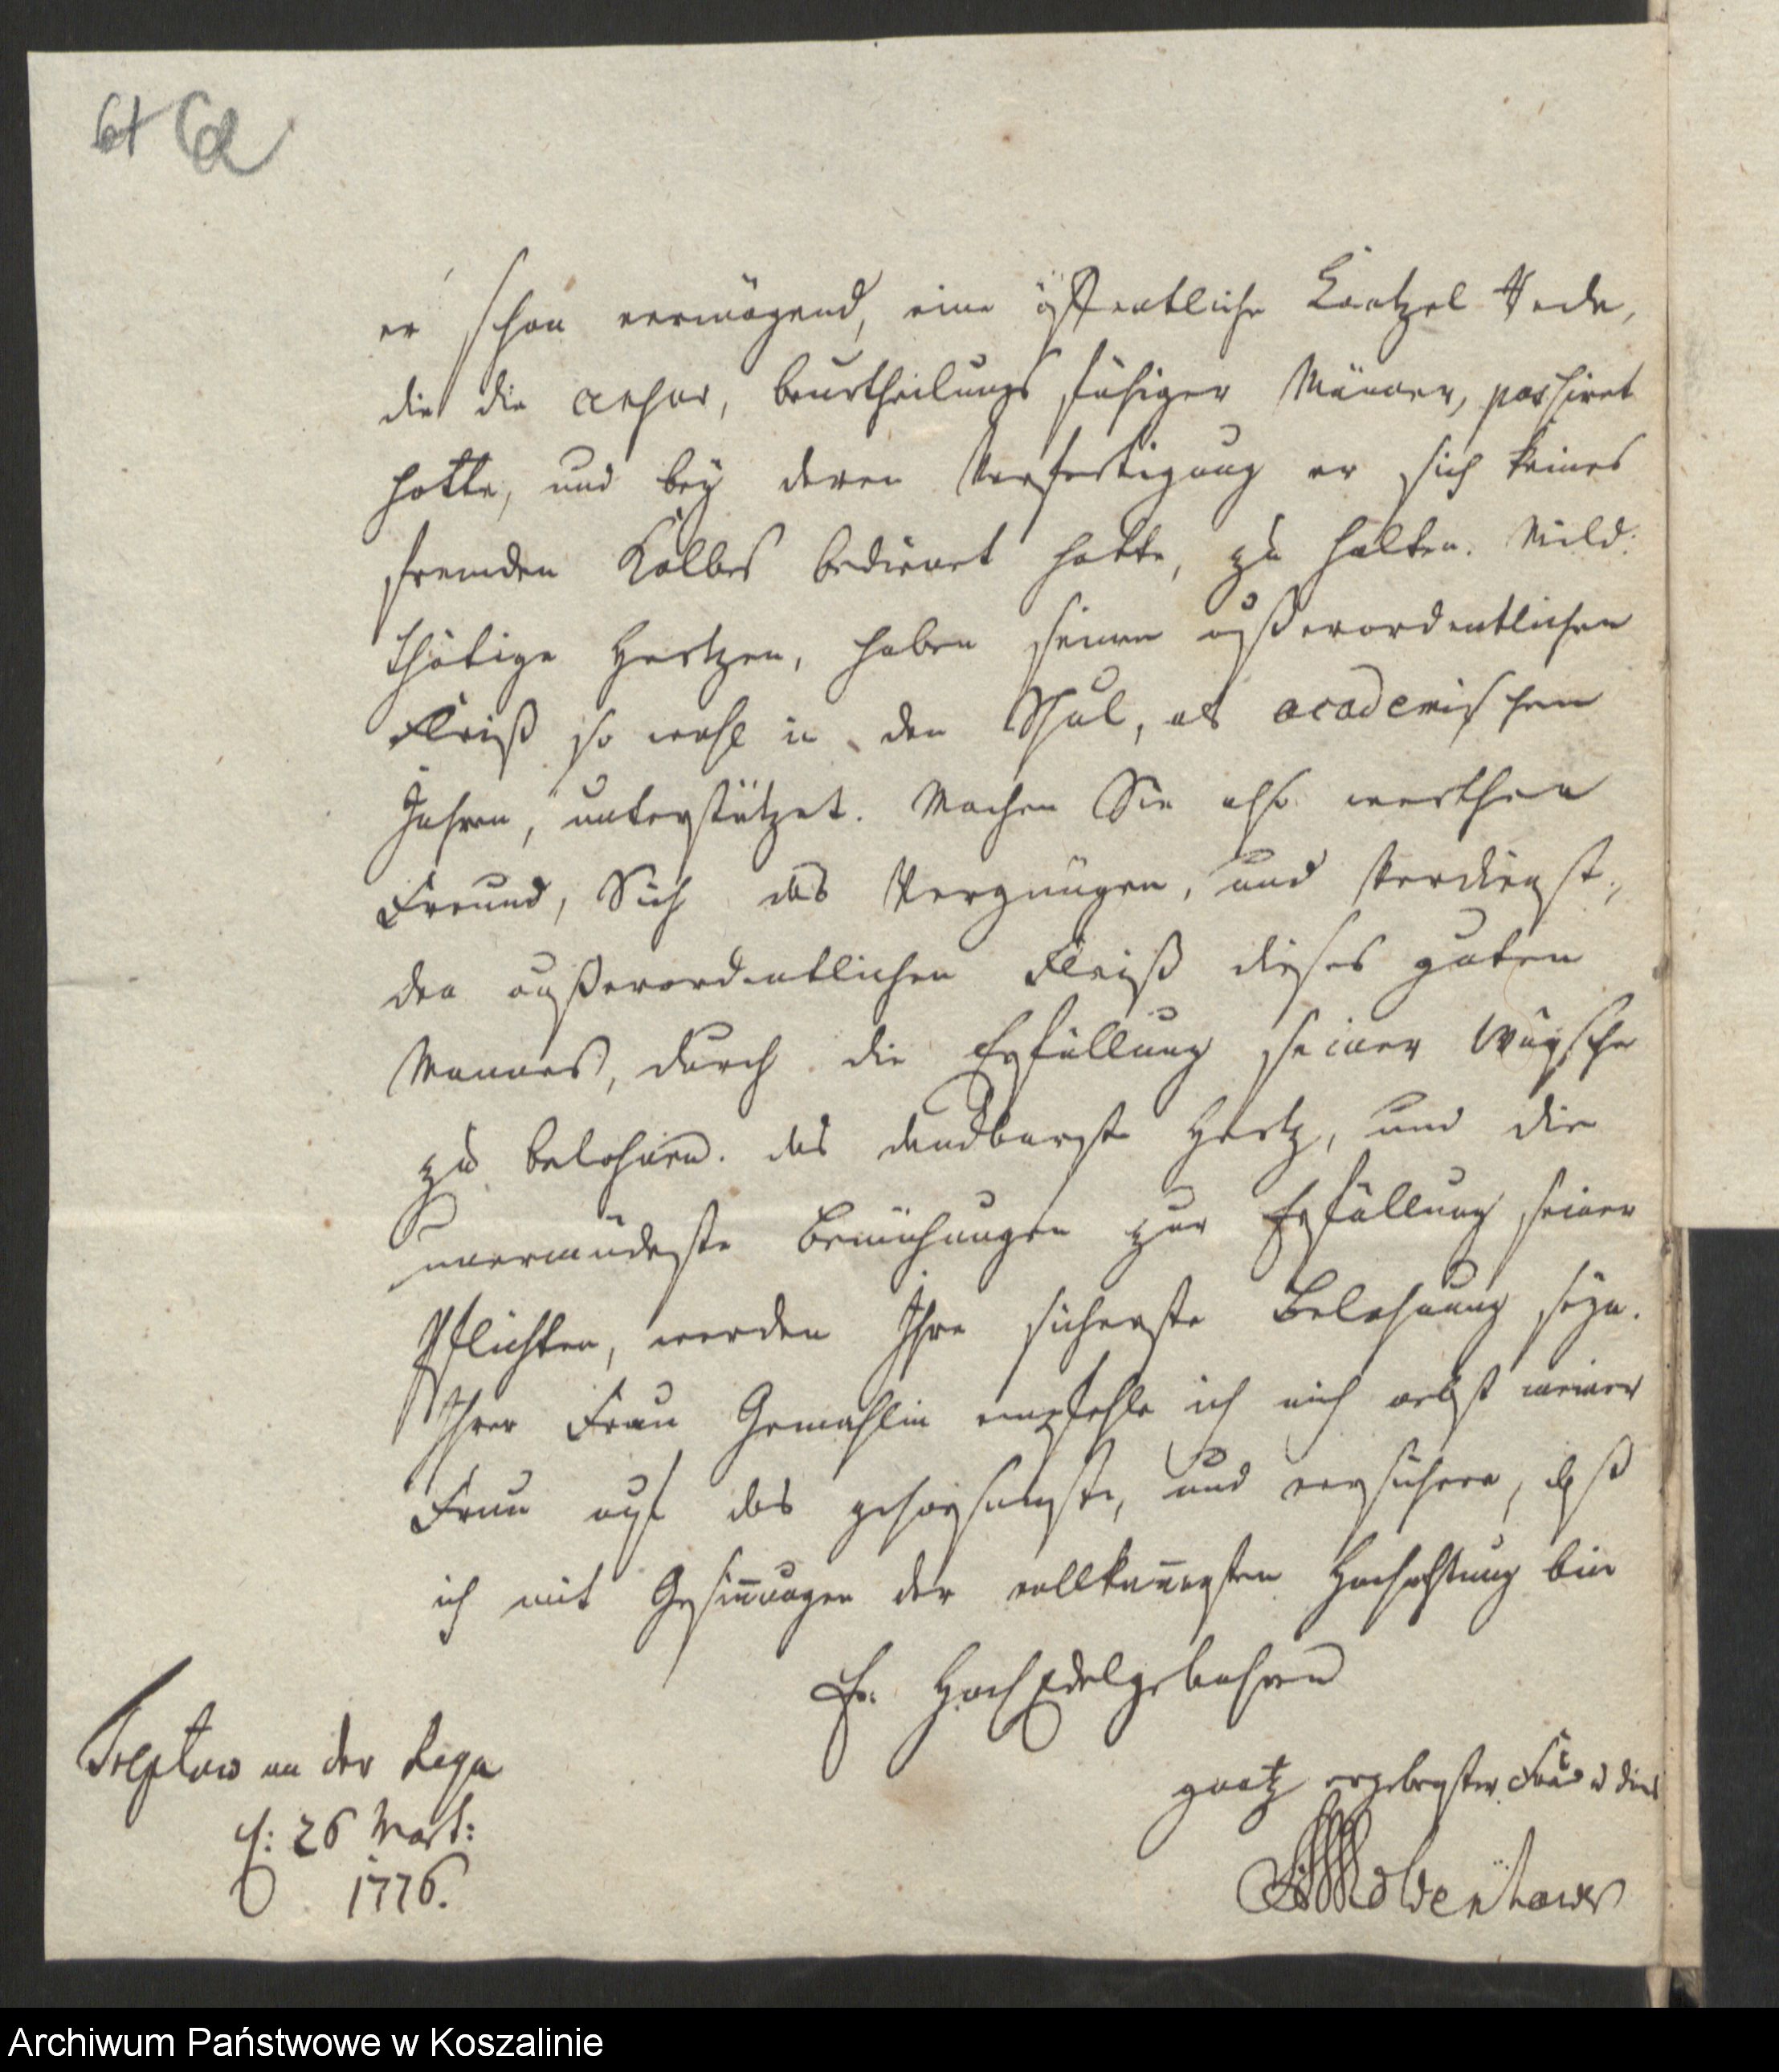 61 62
er schon vermögend, eine öffentliche Cantzel Rede,
die die censur, beurtheilungs fähiger Männer, passiret
hatte, und bey deren Verfertigung er sich keines
fremden Kalbes bedienet hatte, zu halten. Mild:
thätige Hertzen, haben seinen außerordentlichen
Fleiß so wohl in den Schul, als academischen
Jahren, unterstützet. Machen Sie also werthen
Freund, Sich das Vergnügen, und Verdienst,
den außerordentlichen Fleiß dieses guten
Mannes, durch die Erfüllung seiner Wünsche
zu belohnen. das danckbarste Hertz, und die
unermüdeste Bemühungen zur Erfüllung seiner
Pflichten, werden Ihre sicherste Belohnung seyn.
Ihrer Frau Gemahlin empfehle ich mich nebst meiner
Frau auf das gehorsamste, und versichere, daß
ich mit Gesin̅ungen der vollkom̅ensten Hochachtung bin
Ew. HochEdelgebohren
Treptow an der Rega
d: 26 Mart:
1776.
gantz ergebenster
Archiwum Państwowe w Koszalinie